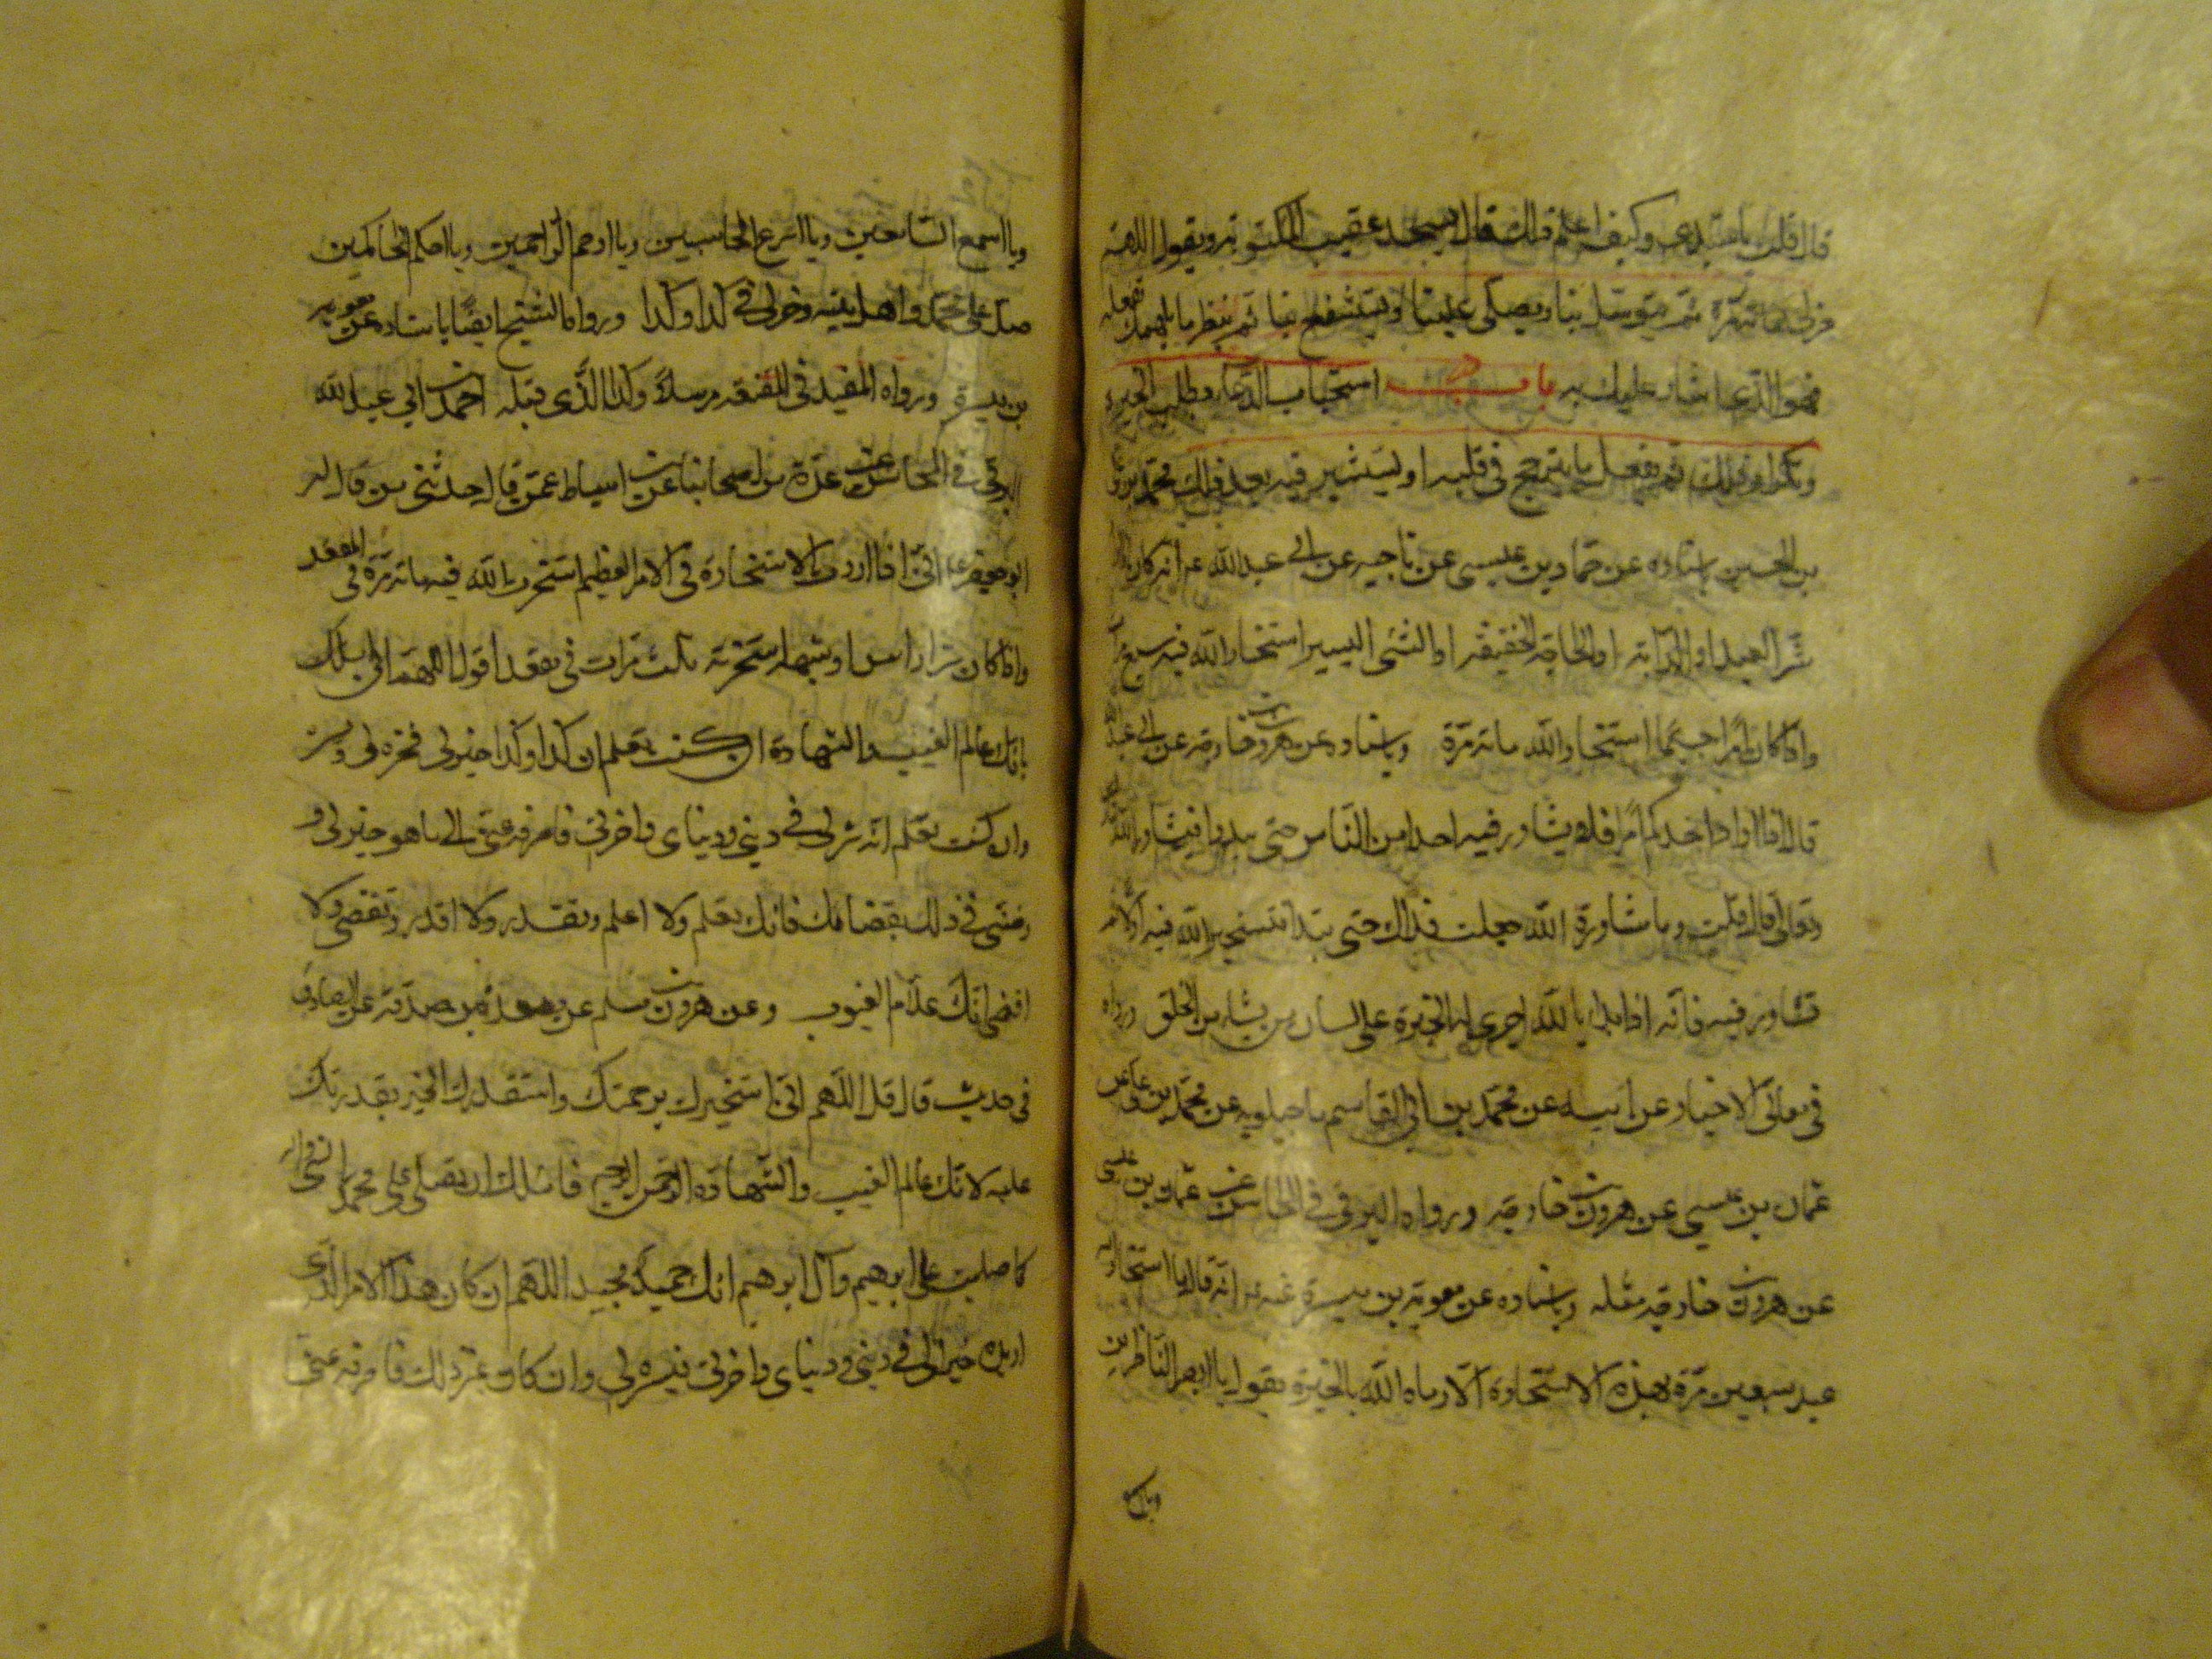 قال قلت يا سيدي وكيف اعلم ذلك قال يسجد عقيب المكتوبة ويقول اللهم
خر لي مائة مرة ثم يتوسل بنا ويصلى علينا ويستشفع بنا ثم ينظر ما يلهمه تفعله
فهو الذى اشار عليك به باب استحباب الدعاء وطلب الخيرة
وتكرار ذلك ثم يفعل ما يترجح في قلبه او يستشير فيه بعد ذلك محمد
بن الحسين باسناده عن حماد بن عيسى عن ناجيه عن ابي عبد الله انه كان
شرا العبد او الدابة او الحاجة الخفيفة او الشئ اليسير استخار الله فيه سبع
واذا كان امرا جسيما استخار الله مائة مرة وباسناده عن هرون بن خارجة عن ابي عبد
قال اذا اراد احدكم امرا فلا يشاور فيه احدا من الناس حتى يبدا فيشاور الله
وتعالى قال قلت وما مشاورة الله جعلت فداك حتى تبدا فتستخير الله فيه اولا ثم
تشاور فيه فانه اذا بدا بالله اجرى له الخيرة على لسان من يشاء من الخلق ورواه
في معانى الاخبار عن ابيه عن محمد بن ابي القاسم ماجيلويه عن محمد بن علي عن
عثمان بن عيسى عن هرون بن خارجه ورواه البرقى في المحاسن عن عثمان بن عيسى
عن هرون بن خارجه مثله وباسناده عن معوية بن ميسرة عنه انه قال ما استخار الله
عبد سبعين مرة بهذه الاستخارة الا رماه الله بالخيرة يقول يا ابصر الناظرين
ويا اسمع
ويا اسمع السامعين ويا اسرع الحاسبين ويا ارحم الراحمين ويا احكم الحاكمين
صل على محمد واهل بيته وخر لي في كذا وكذا ورواه الشيخ ايضا باسناده عن معوية
بن ميسرة ورواه المفيد في المقنعة مرسلا وكذا الذى قبله احمد بن ابي عبد الله
البرقى في المحاسن عن عدة من اصحابنا عن ابن اسباط عمن قال حدثني من قال له
ابو جعفر انى اذا اردت الاستخارة في الامر العظيم استخرت الله فيه مائة مرة في المقعد
واذا كان شراء راس او شبهه استخرته ثلث مرات في مقعد اقول اللهم انى اسئلك
بانك عالم الغيب والشهادة ان كنت تعلم ان كذا وكذا خير لى فخره لى ويسره
وان كنت تعلم انه شر لى في دينى ودنياى واخرتى فاصرفه عنى الى ما هو خير لى و
رضنى في ذلك بقضائك فانك تعلم ولا اعلم وتقدر ولا اقدر وتقضى ولا
اقضى انك علام الغيوب وعن هرون بن مسلم عن مسعدة بن صدقة عن الصادق
في حديث قال قل اللهم انى استخيرك برحمتك واستقدرك الخير بقدرتك
عليه لانك عالم الغيب والشهادة الرحمن الرحيم فاسئلك ان تصلى على محمد النبى واله
كما صليت على ابرهيم وآل ابرهيم انك حميد مجيد اللهم ان كان هذا الامر الذى
اريده خيرا لى في دينى ودنياى واخرتى فيسره لى وان كان غير ذلك فاصرفه عنى